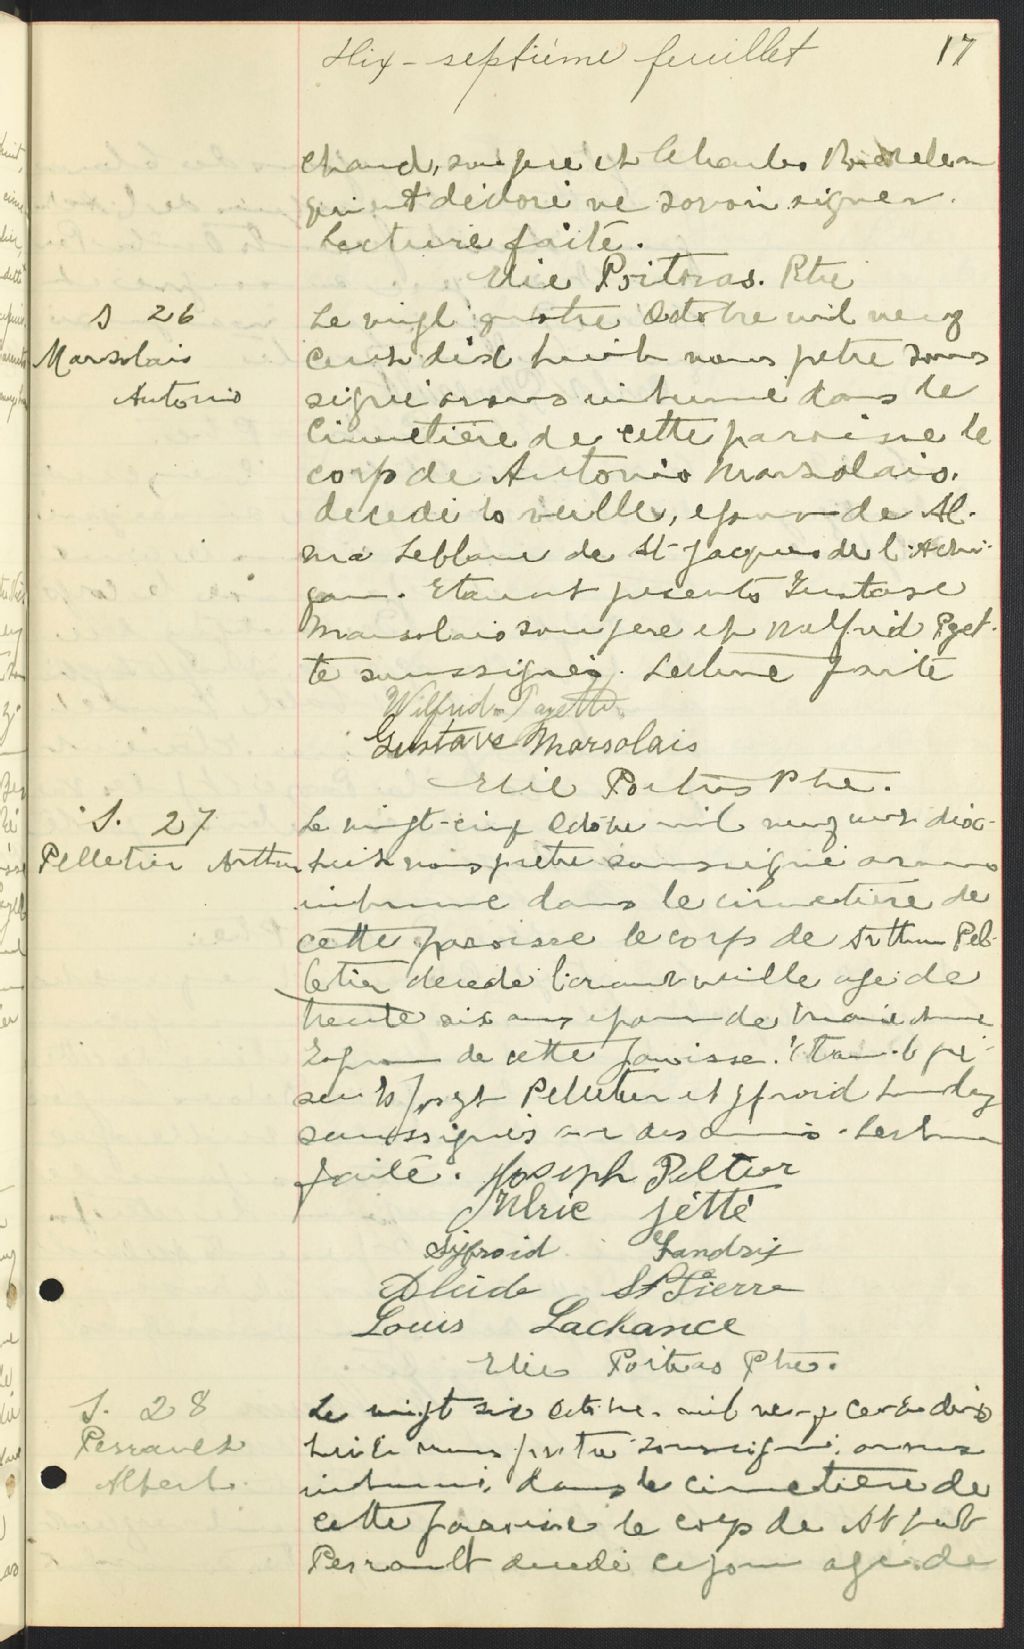 Dix-septième feuillet 17
chand, son père et Charles Richelieu
qui ont déclaré ne savoir signer.
Lecture faite.
Elie Poitras. Ptre
S 26
Marsolais
Antonio
Le vingt quatre Octobre mil neuf
cent dix huit nous prêtre sous
signé avons inhumé dans le
Cimetière de cette paroisse le
corp de Antonio Marsolais.
decedé la veille, epoux de Al-
ma Leblanc de St-Jacques de l'Achi-
gan. Etaient presents Gustave
Marsolais son pere et Wilfrid Payet-
te soussignés. Lecture faite
Wilfrid Payette
Gustave Marsolais
Elie Poitras Ptre.
S. 27
Pelletier Arthur
Le vingt-cinq Octobre mil neuf cent dix-
huit nous prêtre soussigné avons
inhumé dans le cimetière de
cette paroisse le corps de Arthur Pel-
letier decedé l'avant veille age de
trente six ans epoux de Marie Anne
de cette paroisse. Etaient pré-
sents Joseph Pelletier et Sifroid Landry
soussignés avec des amis. Lecture
faite. Joseph Peltier
Ulric jetté
Sifroid Landrix
Alcide St Pierre
Louis Lachance
Elie Poitras Ptre.
S. 28
Perrault
Albert
Le vingt six Octobre mil neuf cent dix
huit nous prêtre soussigné avons
inhumé dans le cimetière de
cette paroisse le corps de Albert
Perrault decedé ce jour age de